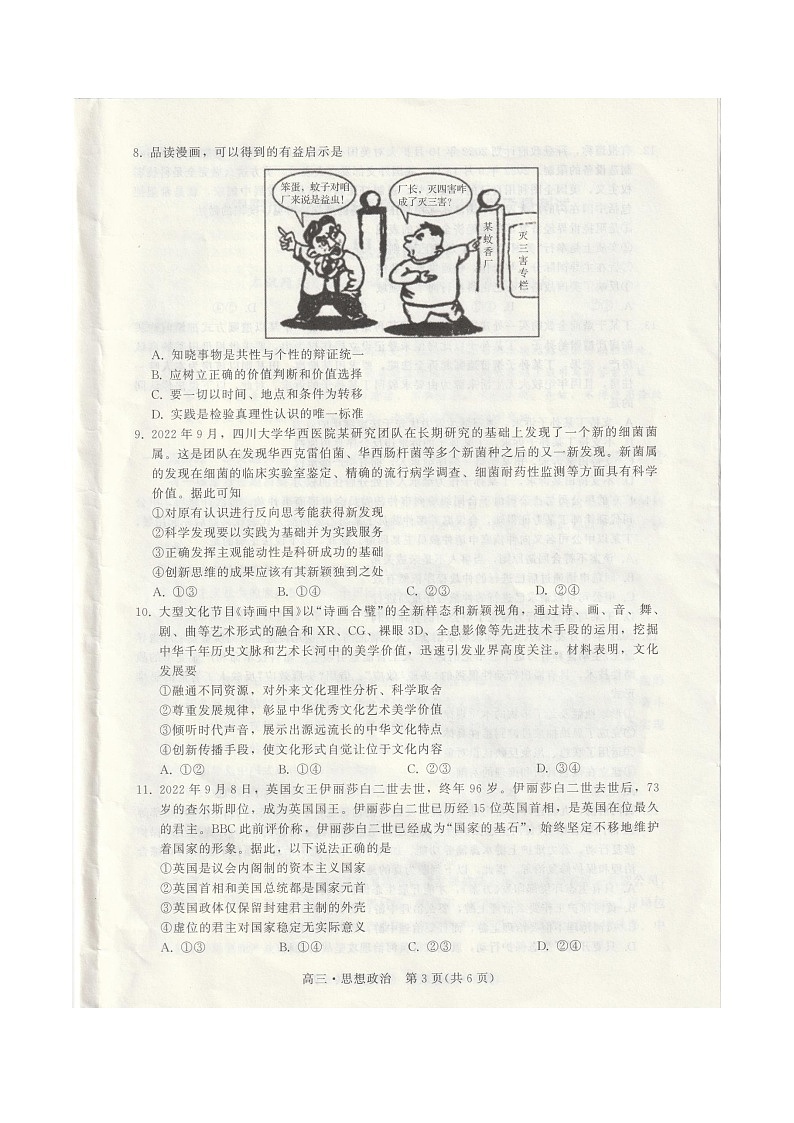 8. 品读漫画，可以得到的有益启示是
笨蛋，蚊子对咱
厂来说是益虫！
厂长，灭四害咋
成了灭三害？
某蚊香厂
灭三害专栏
A. 知晓事物是共性与个性的辩证统一
B. 应树立正确的价值判断和价值选择
C. 要一切以时间、地点和条件为转移
D. 实践是检验真理性认识的唯一标准
9. 2022 年 9 月，四川大学华西医院某研究团队在长期研究的基础上发现了一个新的细菌菌
属。这是团队在发现华西克雷伯菌、华西肠杆菌等多个新菌种之后的又一新发现。新菌属
的发现在细菌的临床实验室鉴定、精确的流行病学调查、细菌耐药性监测等方面具有科学
价值。据此可知
①对原有认识进行反向思考能获得新发现
②科学发现要以实践为基础并为实践服务
③正确发挥主观能动性是科研成功的基础
④创新思维的成果应该有其新颖独到之处
A. ①③ B. ①④ C. ②③ D. ②④
10. 大型文化节目《诗画中国》以“诗画合璧”的全新样态和新颖视角，通过诗、画、音、舞、
剧、曲等艺术形式的融合和 XR、CG、裸眼 3D、全息影像等先进技术手段的运用，挖掘
中华千年历史文脉和艺术长河中的美学价值，迅速引发业界高度关注。材料表明，文化
发展要
①融通不同资源，对外来文化理性分析、科学取舍
②尊重发展规律，彰显中华优秀文化艺术美学价值
③倾听时代声音，展示出源远流长的中华文化特点
④创新传播手段，使文化形式自觉让位于文化内容
A. ①② B. ①④ C. ②③ D. ③④
11. 2022 年 9 月 8 日，英国女王伊丽莎白二世去世，终年 96 岁。伊丽莎白二世去世后，73
岁的查尔斯即位，成为英国国王。伊丽莎白二世已历经 15 位英国首相，是英国在位最久
的君主。BBC 此前评价称，伊丽莎白二世已经成为“国家的基石”，始终坚定不移地维护
着国家的形象。据此，以下说法正确的是
①英国是议会内阁制的资本主义国家
②英国首相和美国总统都是国家元首
③英国政体仅保留封建君主制的外壳
④虚位的君主对国家稳定无实际意义
A. ①③ B. ①④ C. ②③ D. ②④
高三·思想政治 第 3 页(共 6 页)